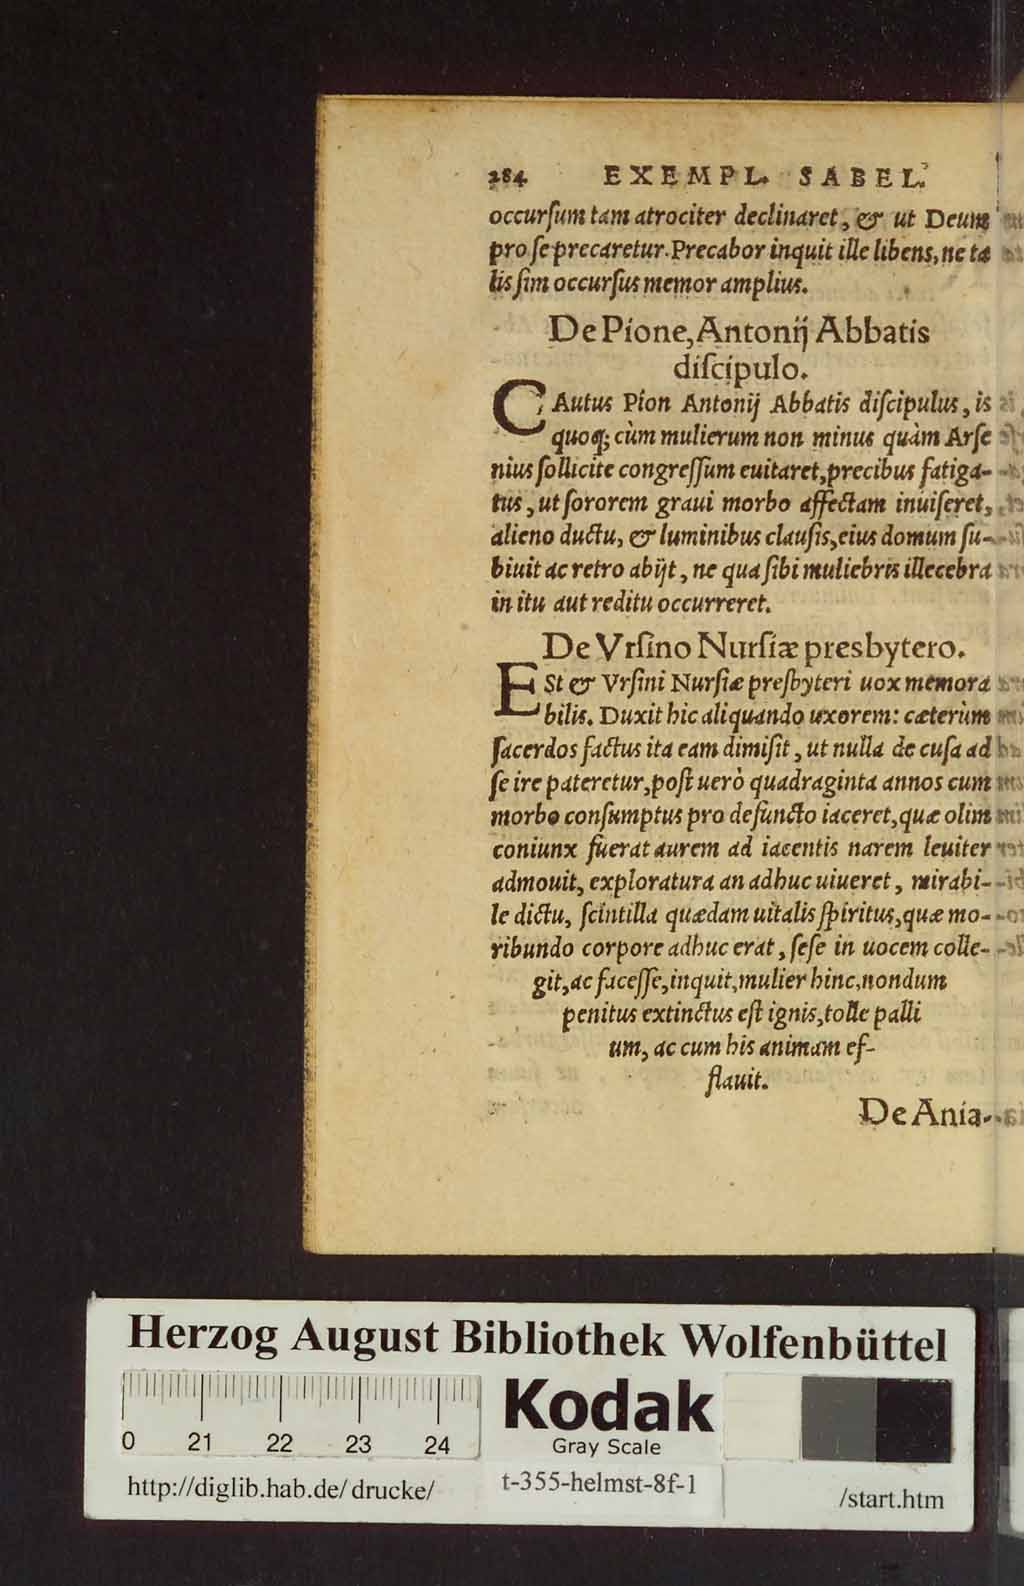 284 EXEMPL. SABEL.
occurſum tam atrociter declinaret, & ut Deum
pro ſe precaretur. Precabor inquit ille libens, ne ta
lis ſim occurſus memor amplius.
De Pione, Antonij Abbatis
diſcipulo.
CAutus Pion Antonij Abbatis diſcipulus, is
quoq; cùm mulierum non minus quàm Arſe
nius ſollicite congreſſum euitaret, precibus fatiga-
tus, ut ſororem graui morbo affectam inuiſeret,
alieno ductu, & luminibus clauſis, eius domum ſu-
biuit ac retro abijt, ne qua ſibi muliebris illecebra
in itu aut reditu occurreret.
De Vrſino Nurſiæ presbytero.
ESt & Vrſini Nurſiæ preſbyteri uox memora
bilis. Duxit hic aliquando uxorem: cæterùm
ſacerdos factus ita eam dimiſit, ut nulla de cuſa ad
ſe ire pateretur, poſt uerò quadraginta annos cum
morbo conſumptus pro defuncto iaceret, quæ olim
coniunx fuerat aurem ad iacentis narem leuiter
admouit, exploratura an adhuc uiueret, mirabi-
le dictu, ſcintilla quædam uitalis ſpiritus, quæ mo-
ribundo corpore adhuc erat, ſeſe in uocem colle-
git, ac faceſſe, inquit, mulier hinc, nondum
penitus extinctus eſt ignis, tolle palli
um, ac cum his animam ef-
flauit.
De Ania-
Herzog August Bibliothek Wolfenbüttel
0 21 22 23 24
Kodak
Gray Scale
http://diglib.hab.de/drucke/ t-355-helmst-8f-1 /start.htm